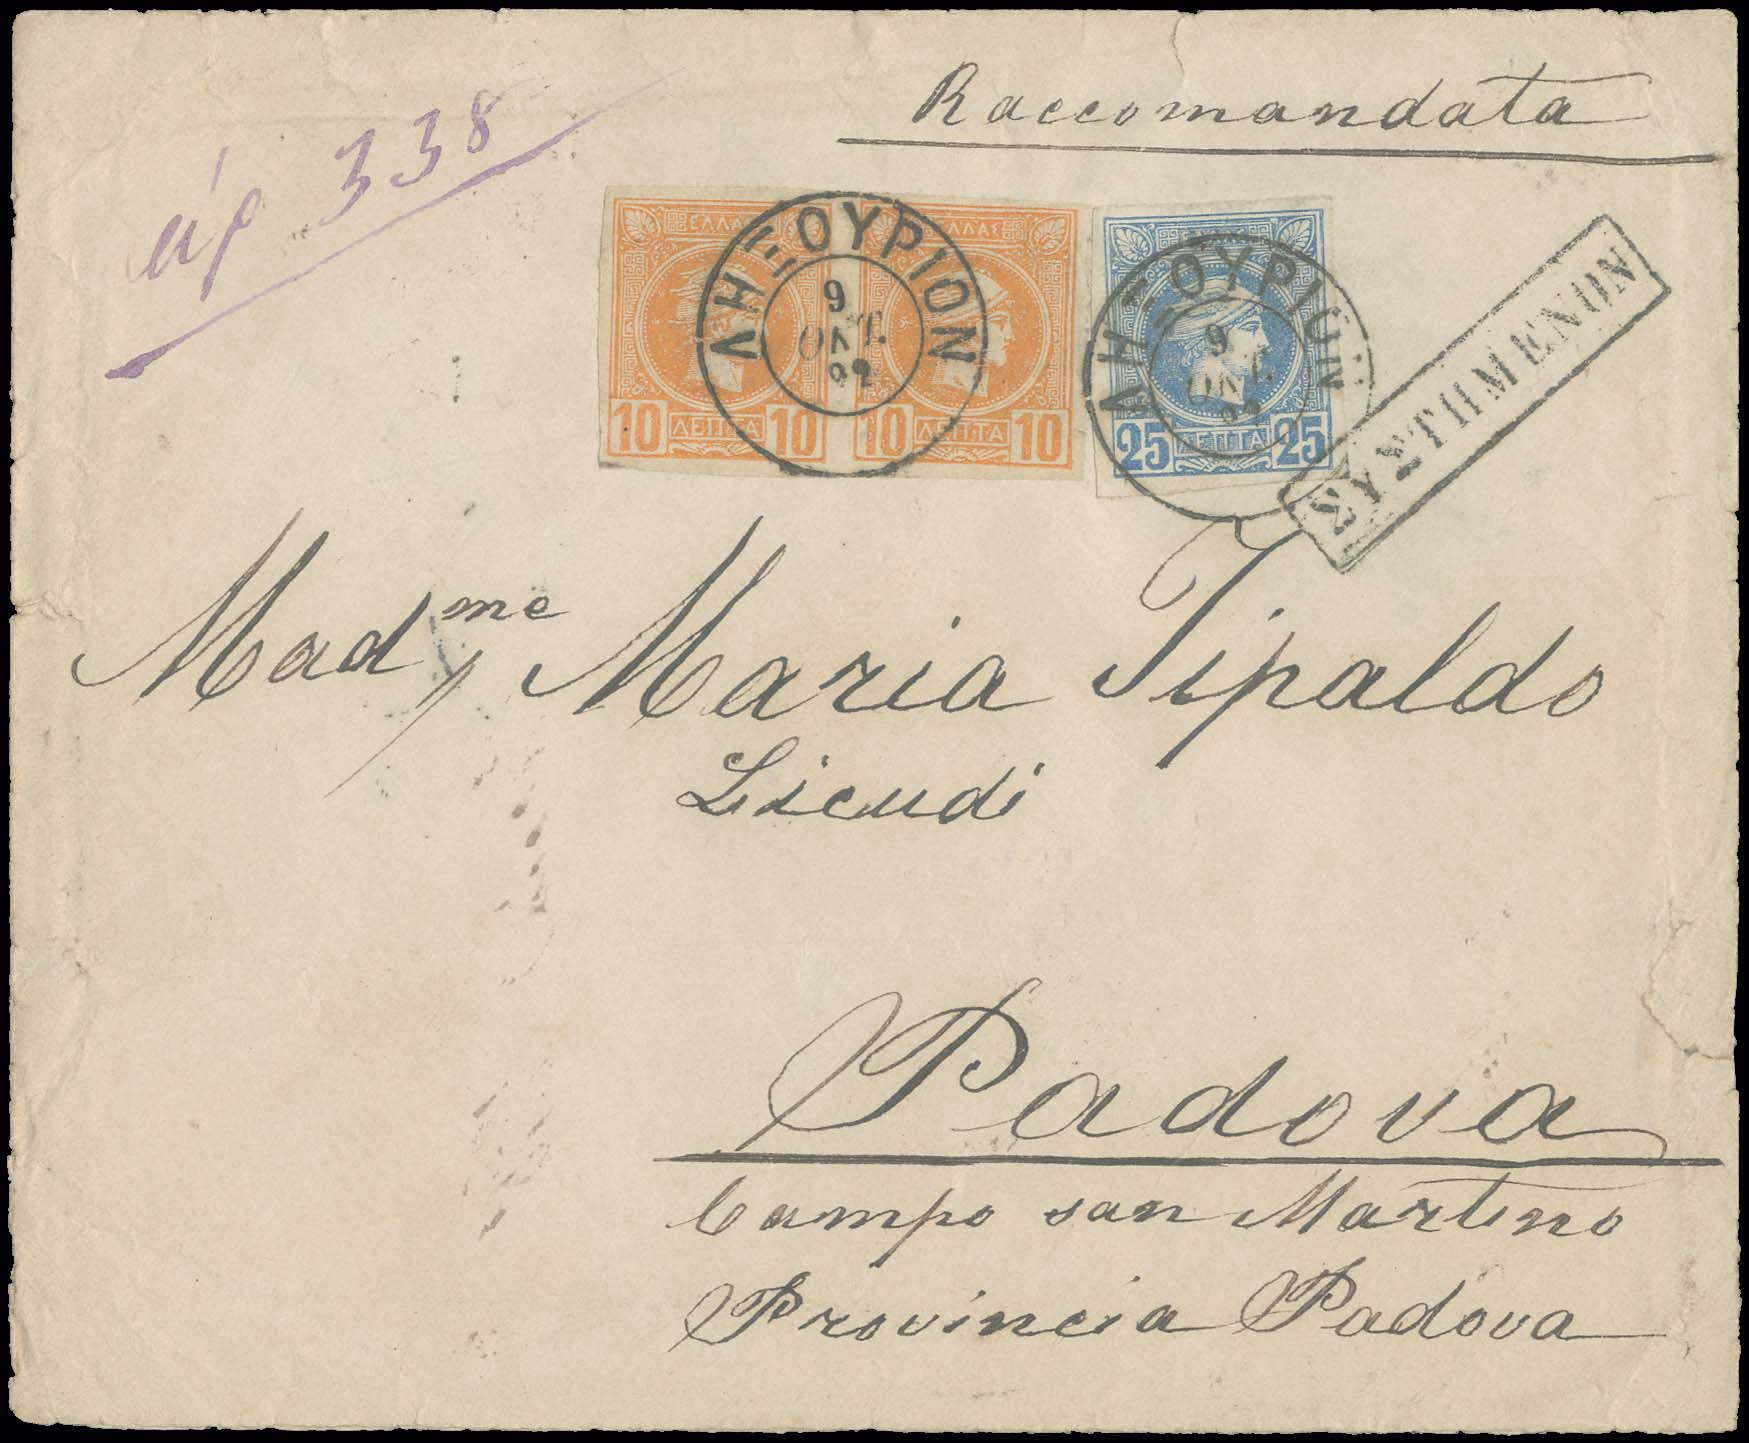 Raccomandata
άρ 338
ΕΛΛΑΣ ΕΛΛΑΣ
ΛΗΞΟΥΡΙΟΝ
9
ΟΚΤ.
92
10 ΛΕΠΤΑ 10 10 ΛΕΠΤΑ 10
ΛΗΞΟΥΡΙΟΝ
9
ΟΚΤ.
25 ΛΕΠΤΑ 25
ΣΥΣΤΗΜΕΝΟΝ
Madme Maria Tipaldo
Licudi
Padova
Campo san Martino
Provincia Padova